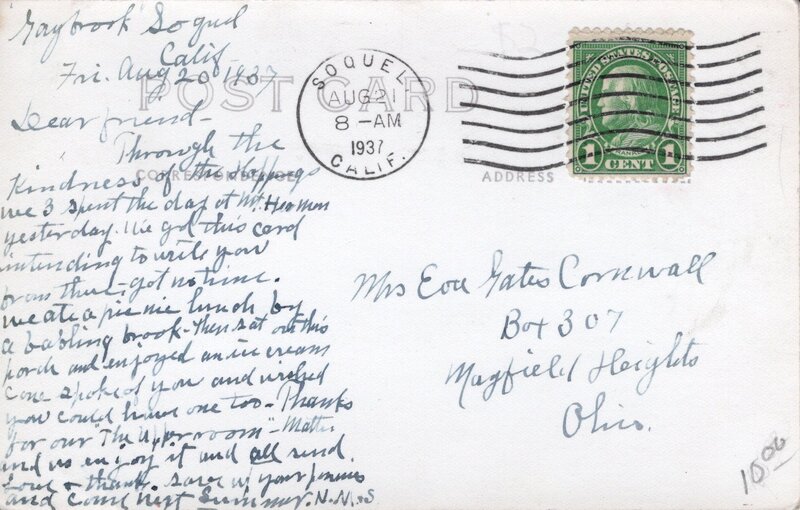 "Gaybrook" Soquel
Calif
Fri. Aug 20 1937
POST CARD
SOQUEL
AUG 21
8 - AM
1937
CALIF.
UNITED STATES POSTAGE
1 CENT 1
CORRESPONDENCE
ADDRESS
Dear friend -
Through the
Kindness of the
we 3 spent the day at Mt. Hermon
yesterday. We got this card
intending to write you
from there - got no time.
we ate a picnic lunch by
a babling brook - then sat out this
porch and enjoyed an ice cream
cone spoke of you and wished
you could have one too - Thanks
for our "The Upper room" -
and us enjoy it and all send
Love & thanks. save up your pennies
and come next Summer. N.N.&S
Mrs Eva Gates Cornwall
Box 307
Mayfield Heights
Ohio.
10.00